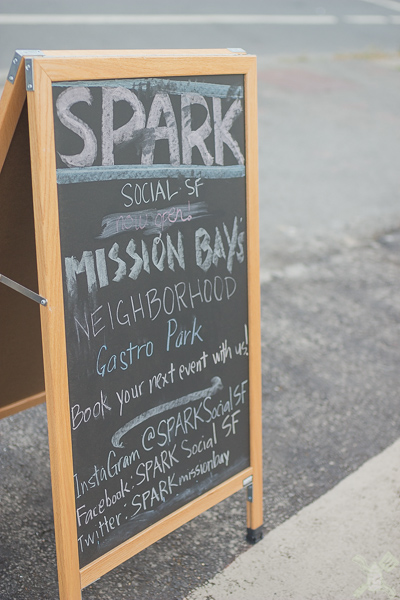 SPARK
SOCIAL SF
now open!
MISSION BAY's
NEIGHBORHOOD
Gastro Park
Book your next event with us!
InstaGram @SPARKSocialSF
Facebook: SPARK Social SF
Twitter: SPARKmissionbay